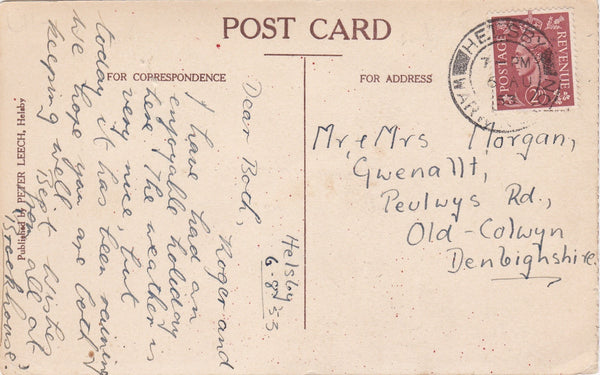 POST CARD
FOR CORRESPONDENCE
FOR ADDRESS
Published by PETER LEECH, Helsby
HELSBY
WARR
PM
POSTAGE
REVENUE
Helsby
6.8.53
Dear Both,
Roger and
I have had an
enjoyable holiday
here. The weather is
very nice, but
today it has been raining
We hope you are both
keeping well.
Best wishes
from all at
"Brookhouse".
Mr & Mrs Morgan,
Gwenallt,
Penlwys Rd.,
Old-Colwyn
Denbighshire.